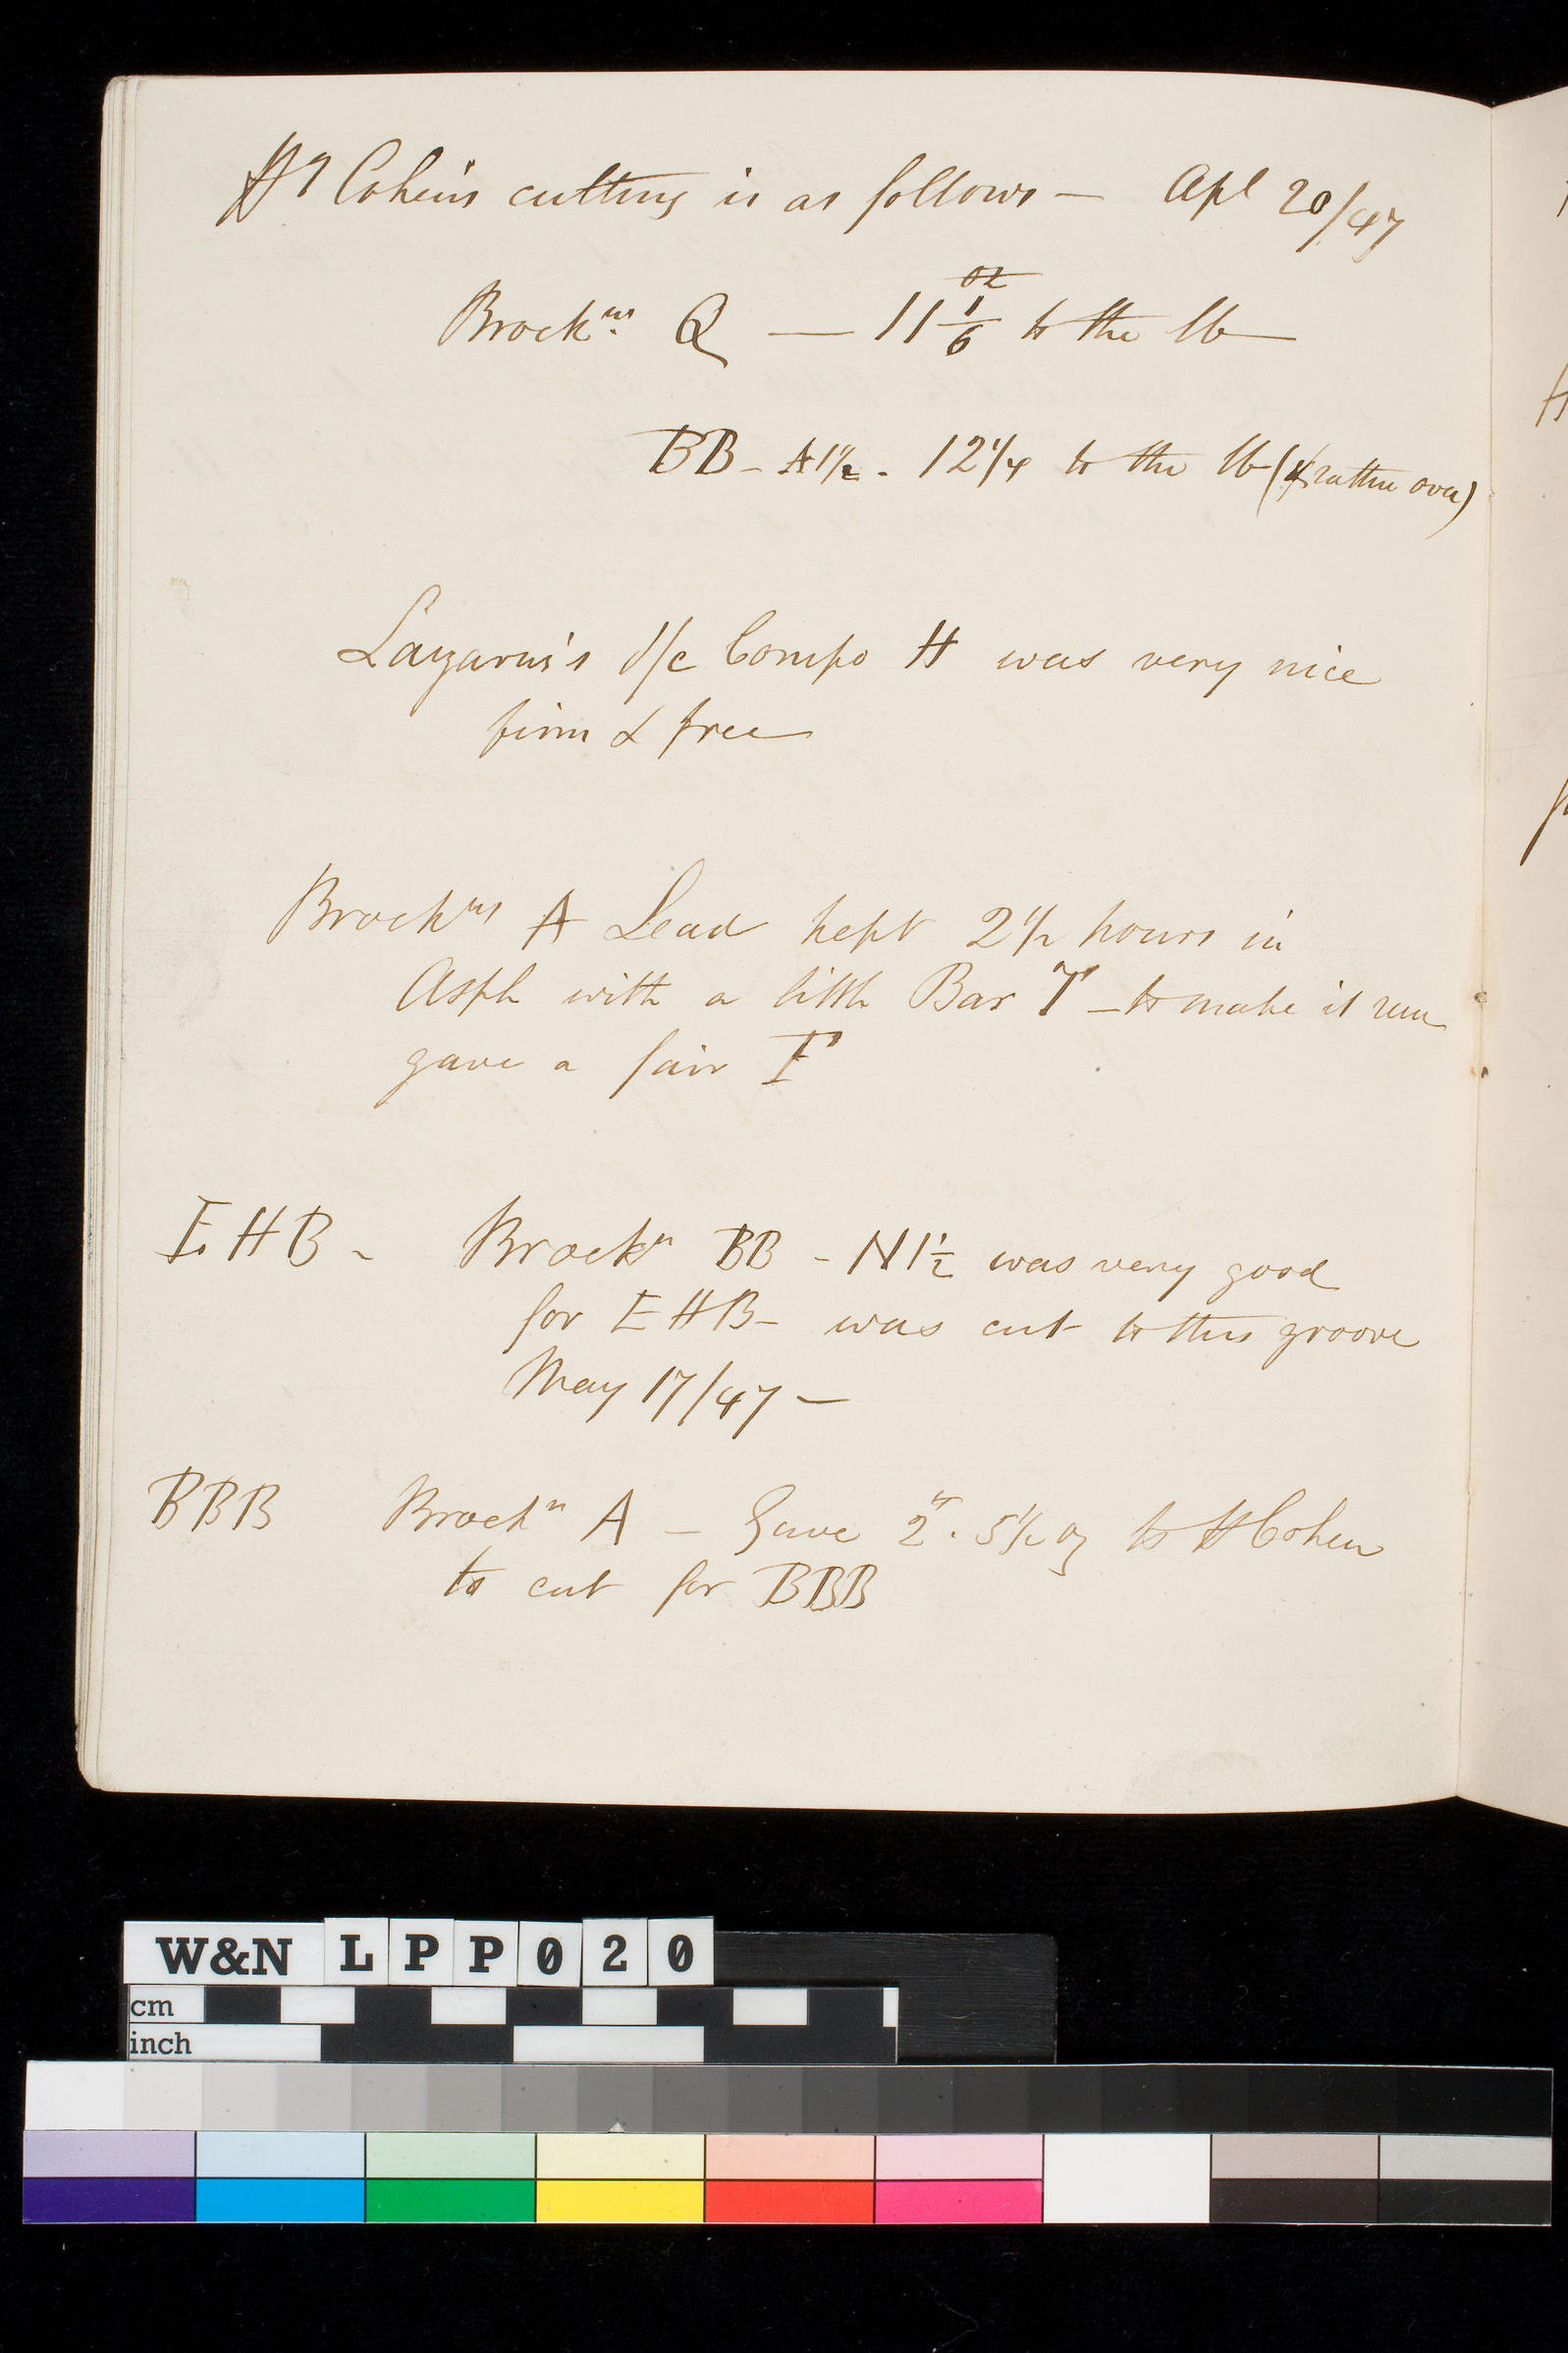 Cohen's cutting is as follows — Apl 20/47
Brockns Q — 11 1/6 to the lb
BB - N 1½ . 12¼ to the lb (rather over)
Lazarus's d/c Compo H was very nice
firm & free
Brockns A Lead kept 2½ hours in
Asph with a little Bar T — to make it run
gave a fair F
EHB - Brockn BB - N 1½ was very good
for EHB - was cut to this groove
May 17/47 —
BBB Brockn A — Gave 2 . 5½ oz to H Cohen
to cut for BBB
W&N LPP020
cm
inch